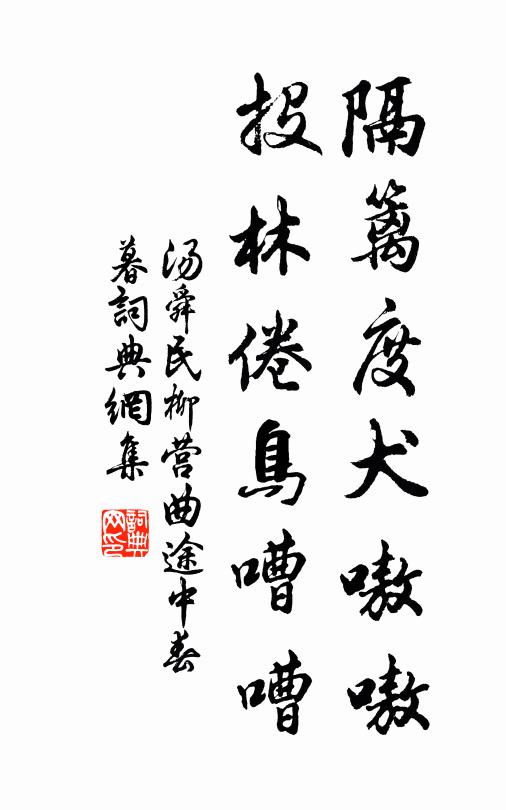 隔篱度犬嗷嗷
投林倦鳥嘈嘈
汤舜民柳营曲途中春
暮詞典網集
詞典
网印